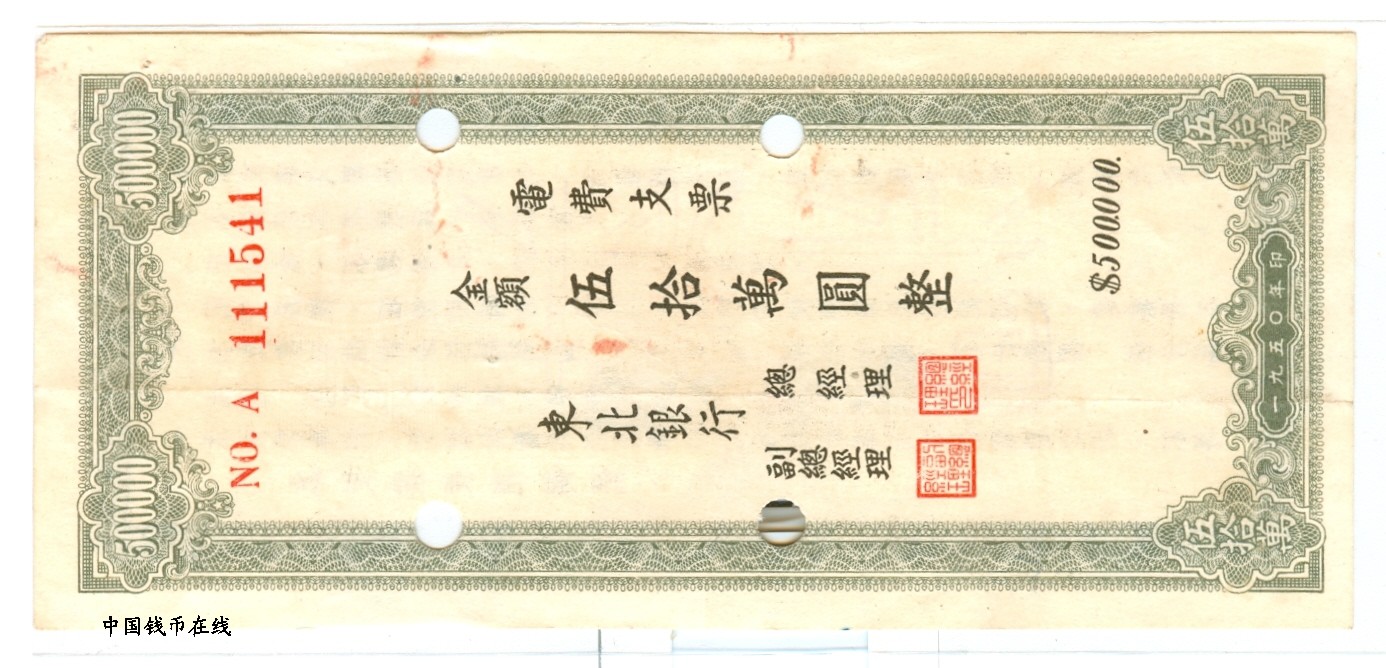 伍拾萬
伍拾萬
500000
500000
一九五〇年印
$500.000.
NO. A 1111541
電費支票
金額
伍拾萬圓整
東北銀行
總經理
副總經理
中国钱币在线